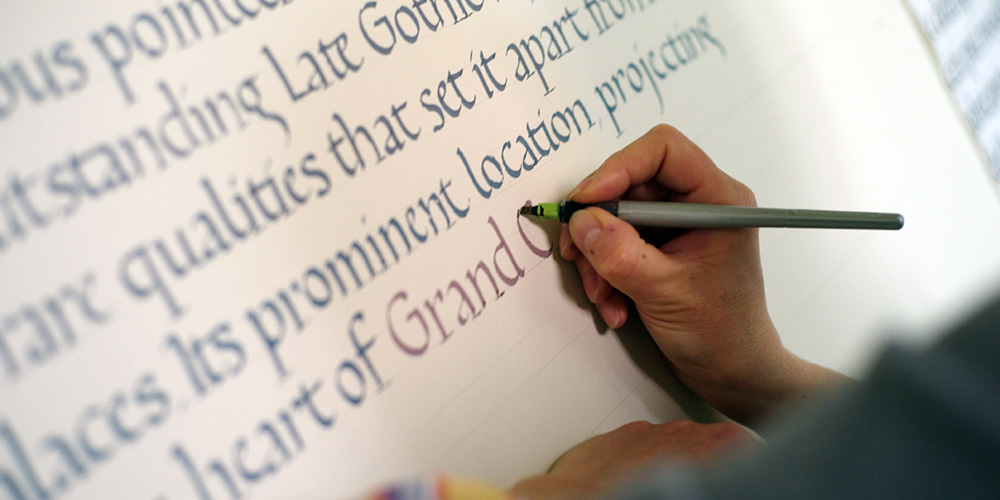 ous pointed
utstanding Late Gothic
rare qualities that set it apart from
places. Its prominent location, projecting
heart of Grand C